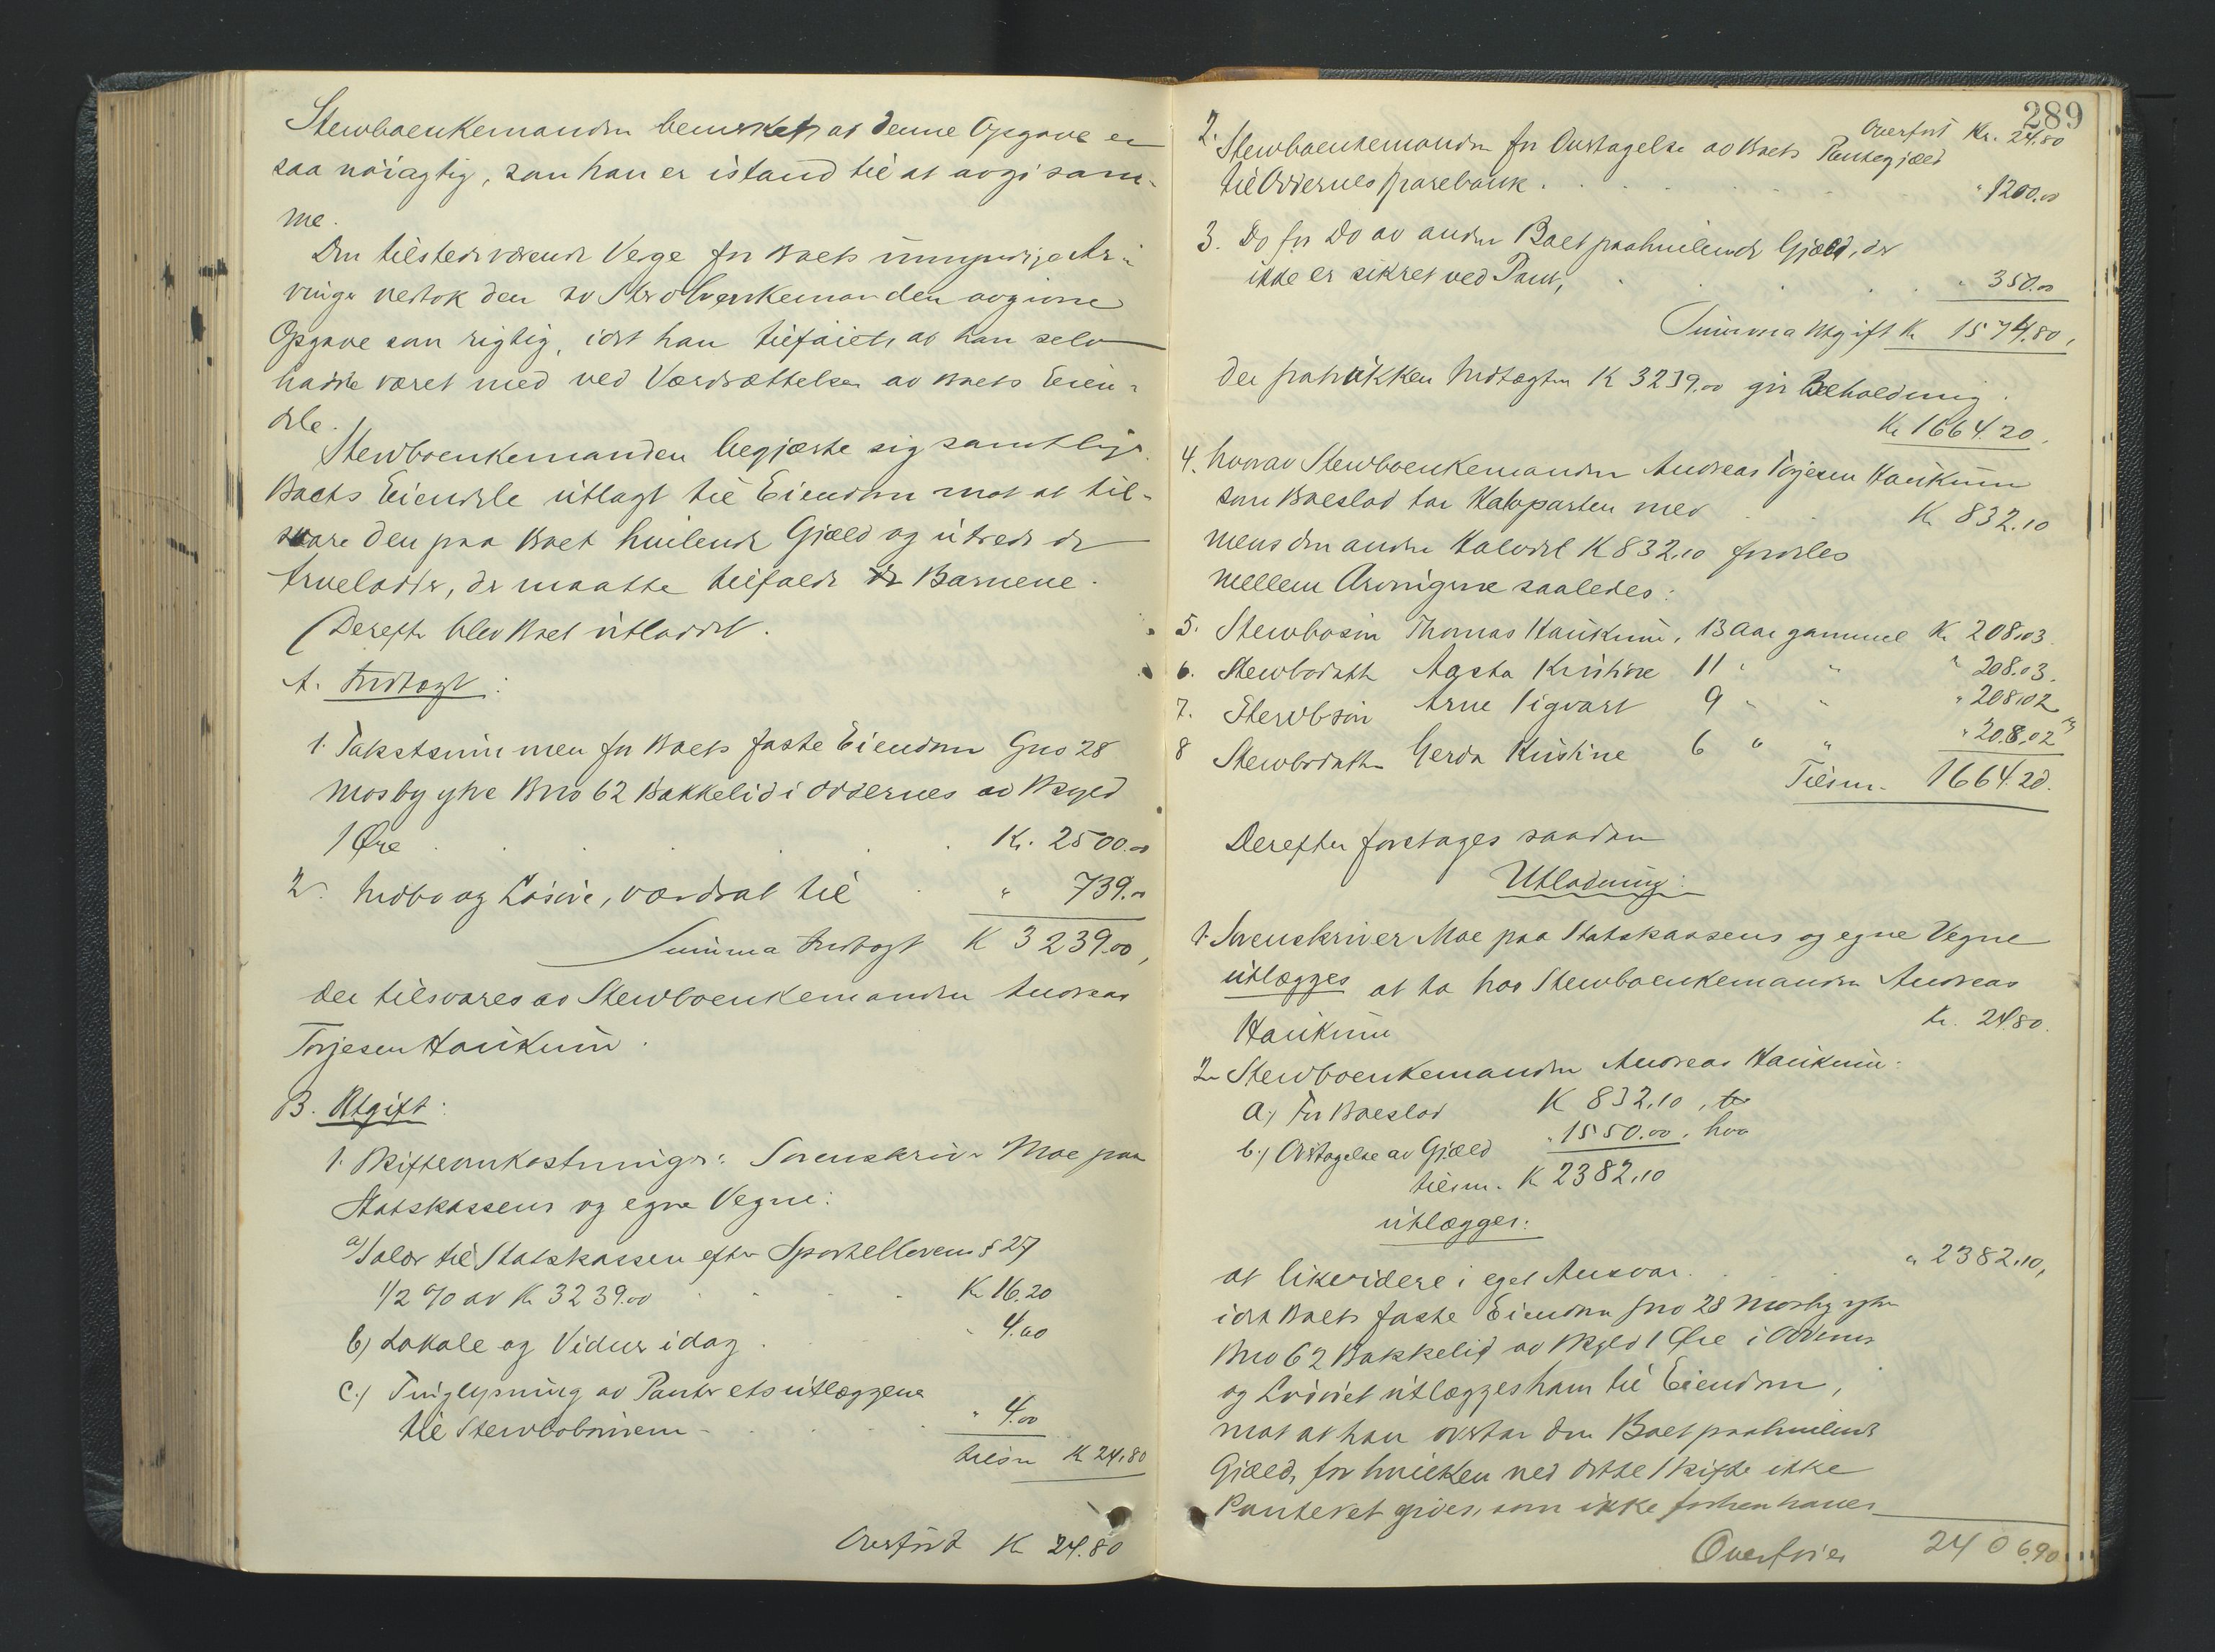 Stervboenkemanden bemerket, at denne Opgave er
saa nöiagtig, som han er istand til at avgi sam-
me.
Den tilstedeværende Verge for Boets umyndige Ar-
vinger vedtok den av Stervboenkemanden avgivne
Opgave som rigtig, idet han tilföiet, at han selv
hadde været med ved Værdsættelsen av Boets Eien-
dele.
Stervboenkemanden begjærte sig samtlige
Boets Eiendele utlagt til Eiendom mot at til-
svare den paa Boet hvilende Gjæld og utrede de
Arvelodder, der maatte tilfalde Barnene.
Derefter blev Boet utloddet.
A. Indtægt:
1. Takstsummen for Boets faste Eiendom Gno 28
Mosby ytre Bno 62 Bakkelid i Oddernes av Skyld
1 Øre Kr. 2500.00
2. Indbo og Lösöre, værdsat til " 739.00
Summa Indtægt K 3239.00,
der tilsvares av Stervboenkemanden Andreas
Torjesen Haukum.
B. Utgift:
1. Skifteomkostninger: Sorenskriver Moe paa
Statskassens og egne Vegne:
a) Salær til Statskassen efter Sportelloven § 27
1/2 % av Kr 3239.00 Kr 16.20
b) Lokale og Vidner idag " 4.60
c.) Tinglysning av Panteretsutlæggene
til Stervbobörnene " 4.00
tilsm K 24.80
Overfört K 24.80
289
Overfört Kr. 24.80
2. Stervboenkemanden for Overtagelse av Boets Pantegjæld
til Oddernes Sparebank. " 1200.00
3. Do for Do av anden Boet paahvilende Gjæld, der
ikke er sikret ved Pant, " 350.00
Summa Utgift K 1574.80,
der fratrukken Indtægten K 3239.00 gir Beholdning.
Kr 1664.20.
4. hvorav Stervboenkemanden Andreas Torjesen Haukum
som Boeslod tar Halvparten med K 832.10
mens den anden Halvdel K 832.10 fordeles
mellem Arvingerne saaledes:
5. Stervbosön Thomas Haukum, 13 Aar gammel Kr 208.03.
6. Stervbodatter Aasta Kristine 11 " " " 208.03.
7. Stervbosön Arne Sigvart 9 " " " 208.02
8 Stervbodatter Gerda Kristine 6 " " " 208.02
Tilsm. 1664.20.
Derefter foretages saadan
Utlodning:
1. Sorenskriver Moe paa Statskassens og egne Vegne
utlægges at ta hos Stervboenkemanden Andreas
Haukum Kr. 24.80.
2. Stervboenkemanden Andreas Haukum:
a.) For Boeslod K 832.10,
b.) Overtagelse av Gjæld " 1550.00.
tilsm. K 2382.10
utlægges:
at likvidere i eget Ansvar. " 2382.10,
idet Boets faste Eiendom Gno 28 Mosby ytre
Bno 62 Bakkelid av Skyld 1 Øre i Oddernes
og Lösöret utlægges ham til Eiendom,
mot at han overtar den Boet paahvilende
Gjæld, for hvilken ved dette Skifte ikke
Panteret gives, som ikke forhen haves
Overföres 2406.90